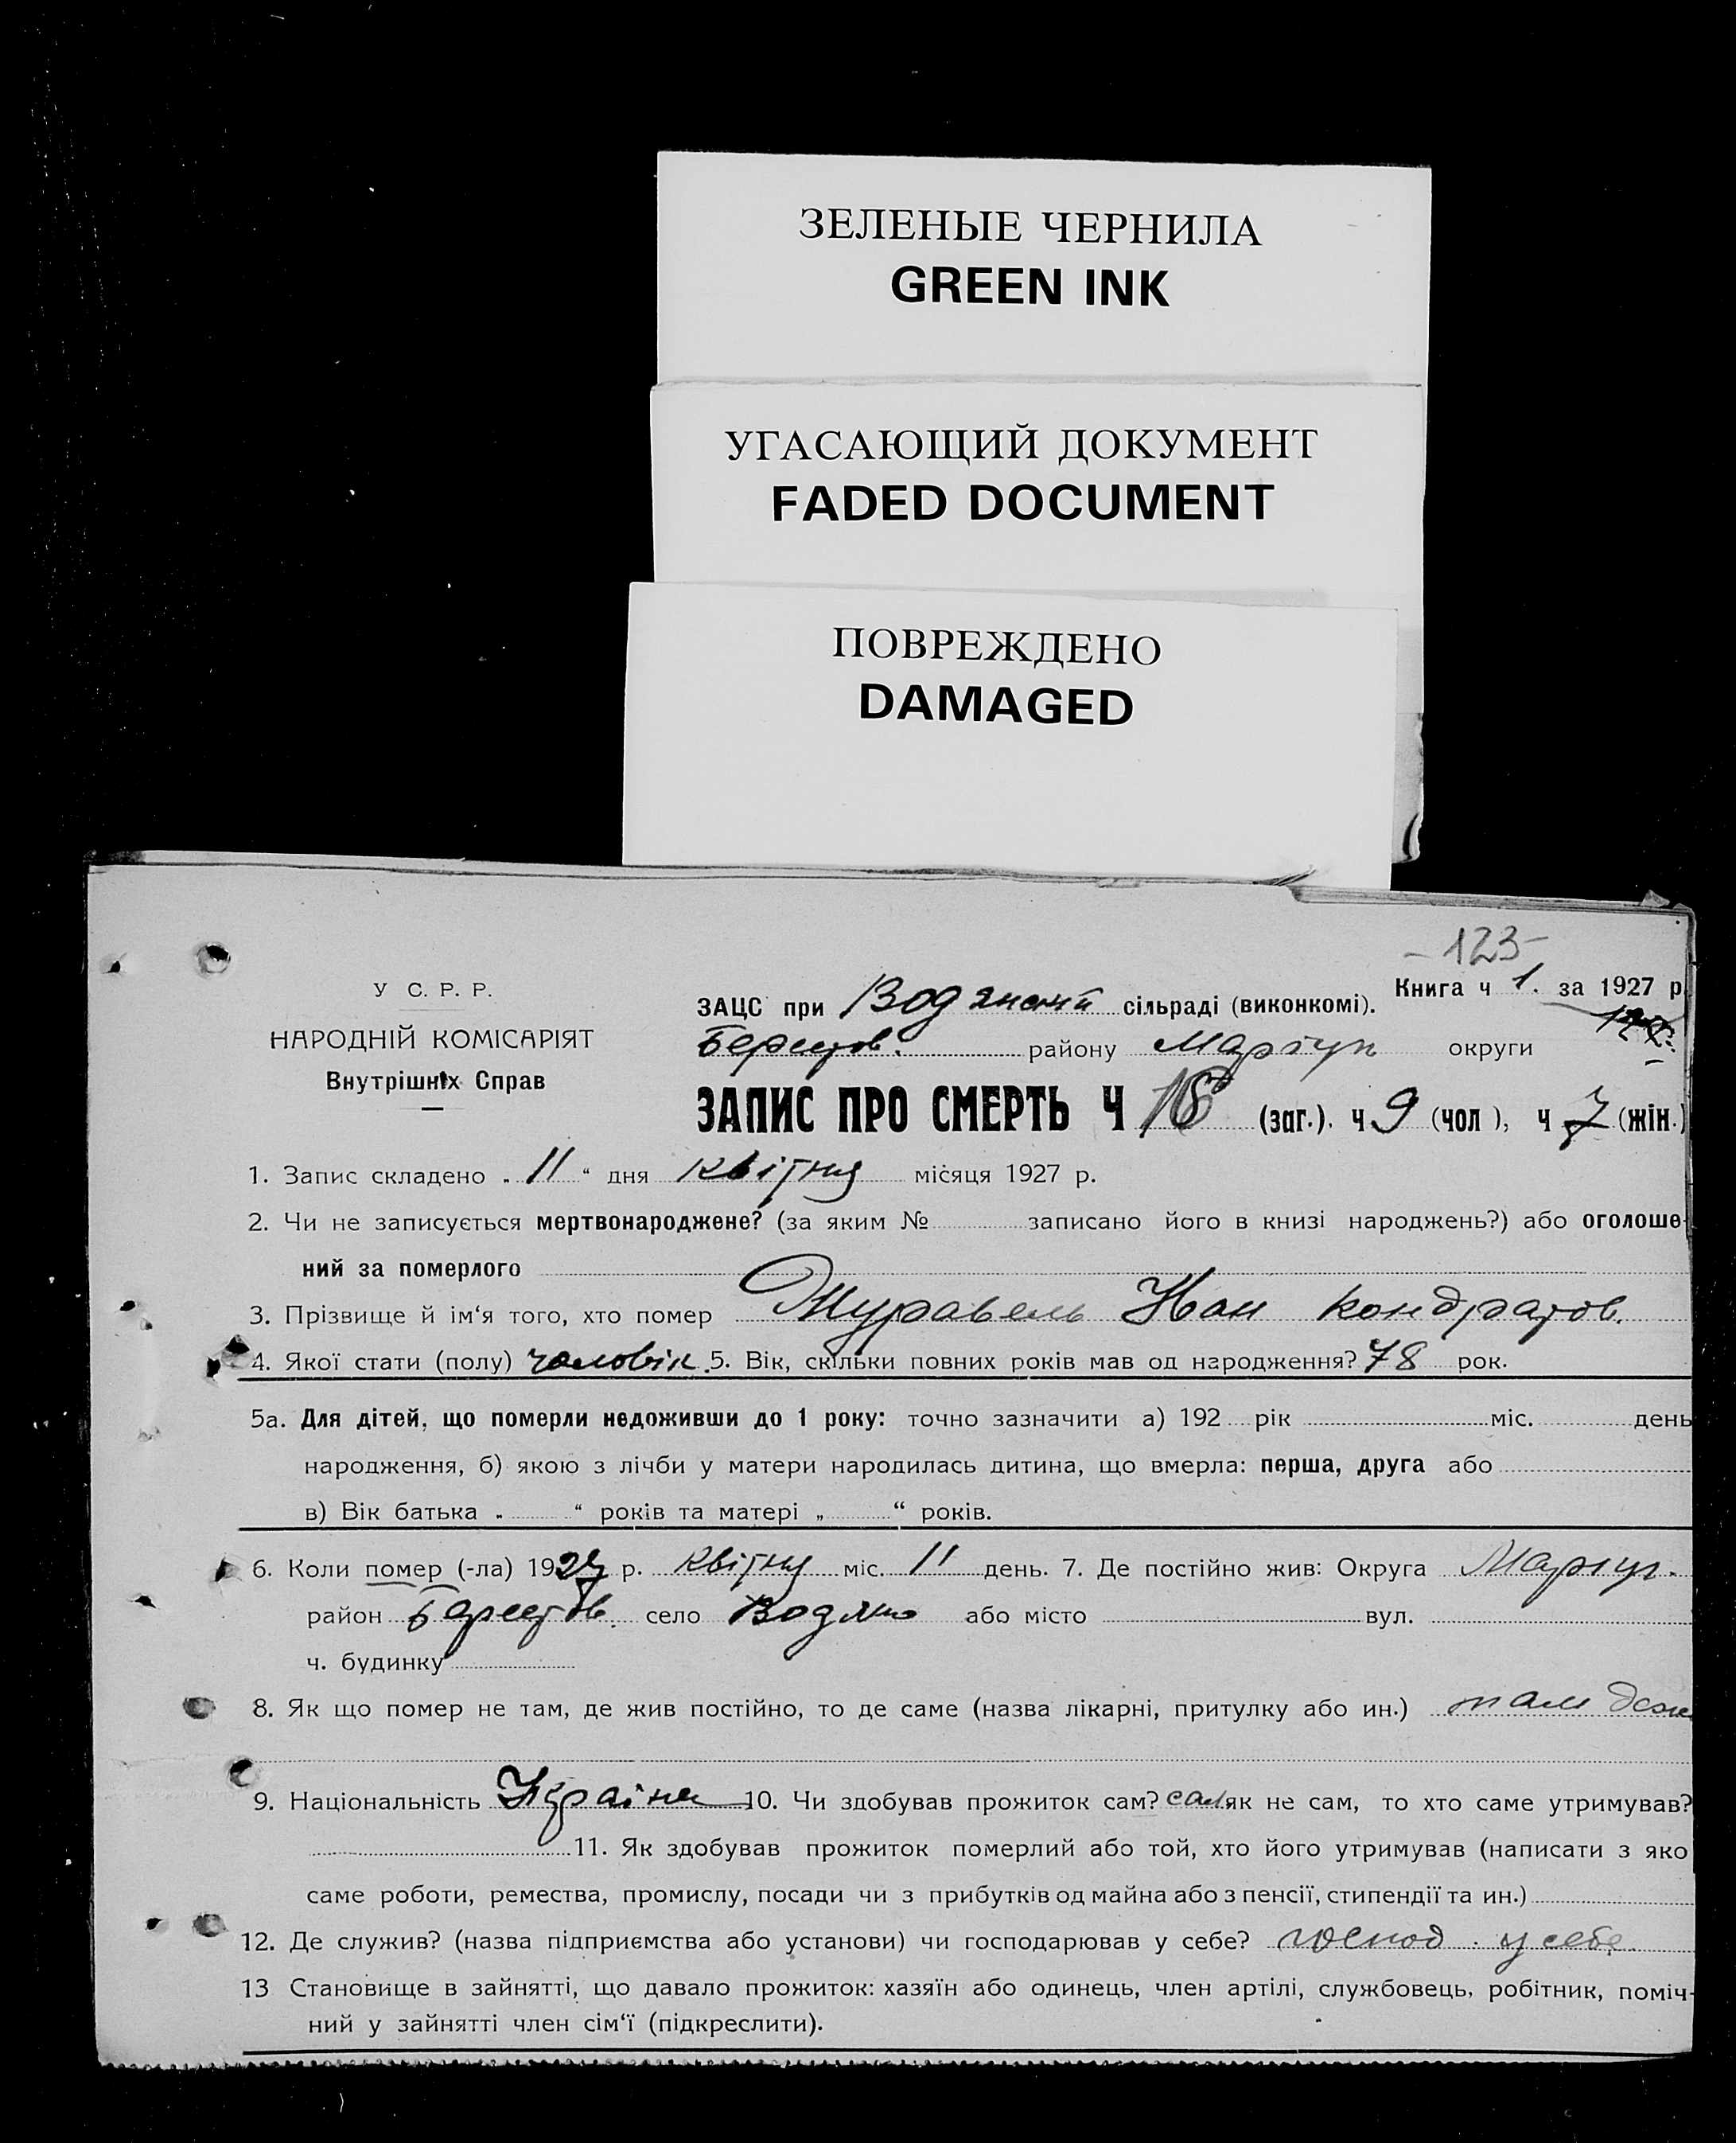 ЗЕЛЕНЫЕ ЧЕРНИЛА
GREEN INK
УГАСАЮЩИЙ ДОКУМЕНТ
FADED DOCUMENT
ПОВРЕЖДЕНО
DAMAGED
-123-
Книга ч 1. за 1927 р
У С. Р. Р.
НАРОДНІЙ КОМІСАРІЯТ
Внутрішніх Справ
ЗАЦС при сільраді (виконкомі).
Берестов. району Маріуп округи
ЗАПИС ПРО СМЕРТЬ Ч (заг.). ч 9 (чол), ч 7 (жін.)
1. Запис складено „ 11 “ дня квітня місяця 1927 р.
2. Чи не записується мертвонароджене? (за яким № записано його в книзі народжень?) або оголоше-
ний за померлого
3. Прізвище й ім‘я того, хто помер Журавель Иван Кондратов.
4. Якої стати (полу) чоловік. 5. Вік, скільки повних років мав од народження? 78 рок.
5а. Для дітей, що померли недоживши до 1 року: точно зазначити а) 192 рік міс. день
народження, б) якою з лічби у матери народилась дитина, що вмерла: перша, друга або
в) Вік батька „ “ років та матері „ “ років.
6. Коли помер (-ла) 1927 р. квітня міс. 11 день. 7. Де постійно жив: Округа Маріуп.
район Берестов. село Водяно або місто вул.
ч. будинку
8. Як що помер не там, де жив постійно, то де саме (назва лікарні, притулку або ин.) там
9. Національність 10. Чи здобував прожиток сам? сам як не сам, то хто саме утримував?
11. Як здобував прожиток померлий або той, хто його утримував (написати з яко
саме роботи, ремества, промислу, посади чи з прибутків од майна або з пенсії, стипендії та ин.)
12. Де служив? (назва підприємства або установи) чи господарював у себе? господ. у себе.
13 Становище в зайнятті, що давало прожиток: хазяїн або одинець, член артілі, службовець, робітник, поміч-
ний у зайнятті член сім‘ї (підкреслити).